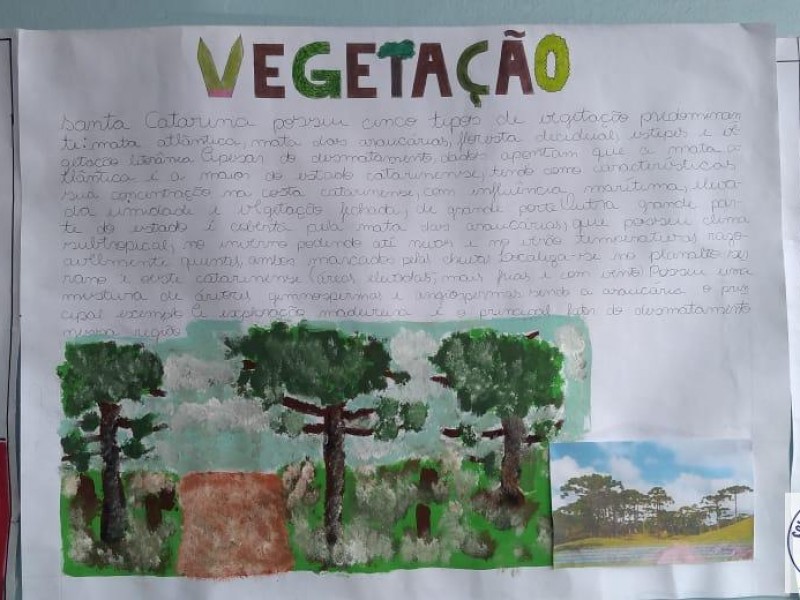 VEGETAÇÃO
Santa Catarina possui cinco tipos de vegetação predominan
te: mata atlântica, mata das araucárias, floresta decidual, estepes e ve
getação litorânea. Apesar do desmatamento, dados apontam que a mata a
tlântica é a maior do estado catarinense, tendo como características
sua concentração na costa catarinense, com influência marítima, eleva-
da umidade e vegetação fechada, de grande porte. Outra grande par-
te do estado é coberta pela mata das araucárias, que possui clima
subtropical, no inverno podendo até nevar e no verão temperaturas razo-
avelmente quentes, ambos marcados pelas chuvas. Localiza-se no planalto se
rrano e oeste catarinense (áreas elevadas, mais frias e com vento). Possui uma
mistura de árvores gimnospermas e angiospermas sendo a araucária o prin
cipal exemplo. A exploração madeireira é o principal fator do desmatamento
nessa região